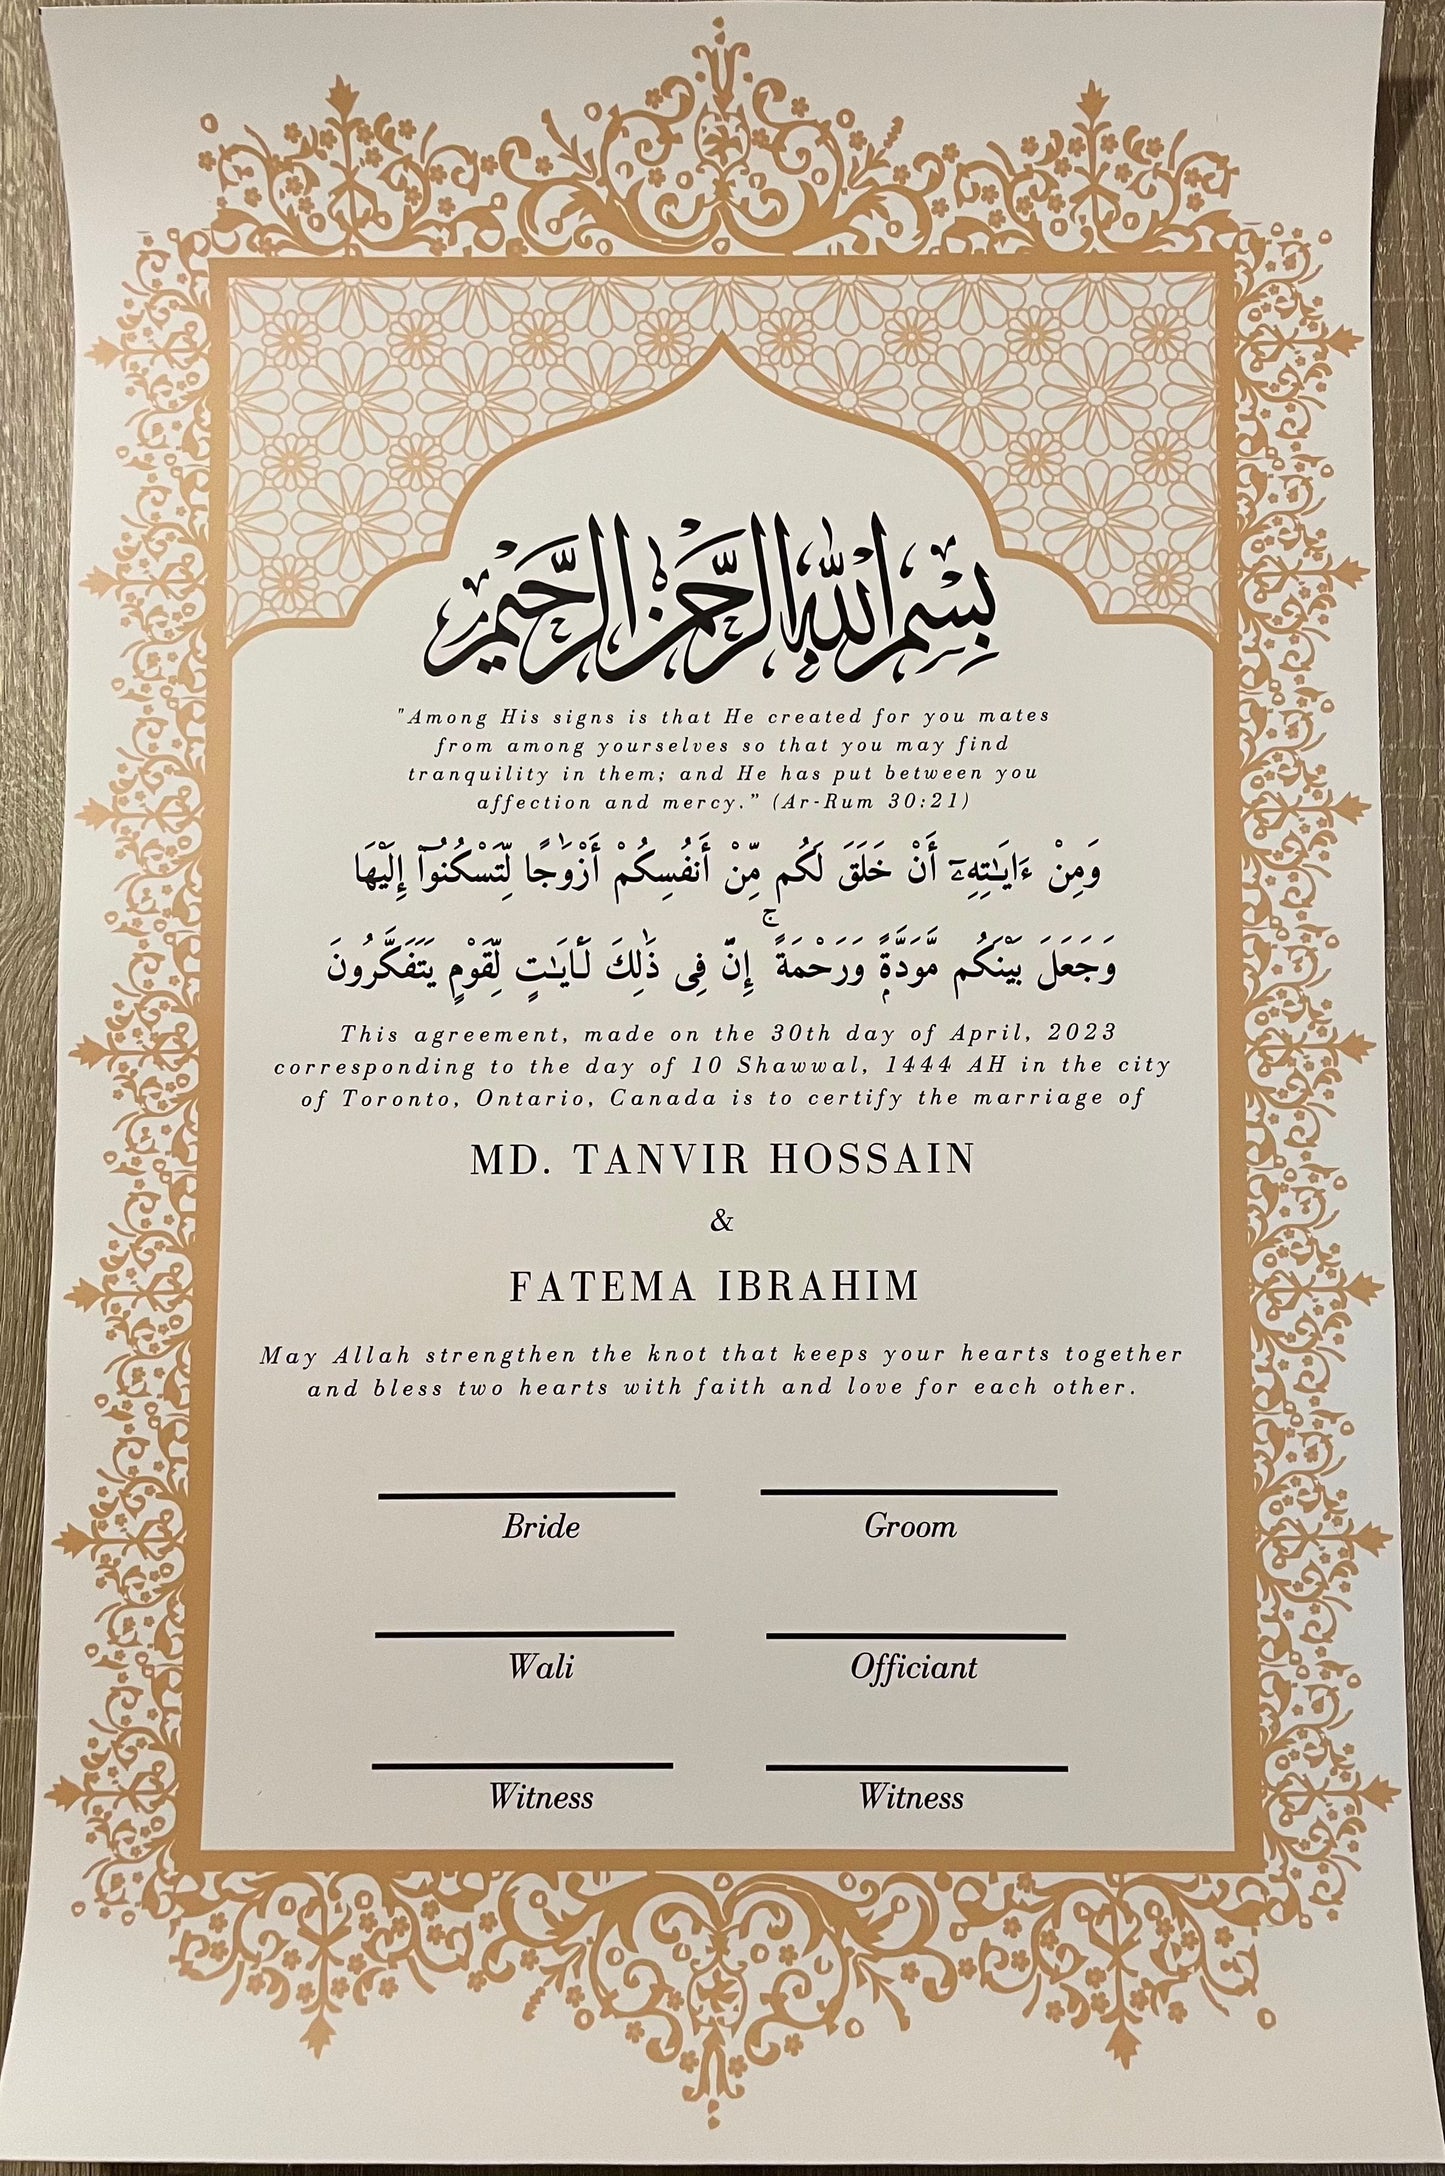 بِسْمِ اللهِ الرَّحْمٰنِ الرَّحِيْمِ
"Among His signs is that He created for you mates
from among yourselves so that you may find
tranquility in them; and He has put between you
affection and mercy.” (Ar-Rum 30:21)
وَمِنْ ءَايَـٰتِهِۦٓ أَنْ خَلَقَ لَكُم مِّنْ أَنفُسِكُمْ أَزْوَٰجًا لِّتَسْكُنُوٓا۟ إِلَيْهَا
وَجَعَلَ بَيْنَكُم مَّوَدَّةًۭ وَرَحْمَةً ۚ إِنَّ فِى ذَٰلِكَ لَـَٔايَـٰتٍ لِّقَوْمٍ يَتَفَكَّرُونَ
This agreement, made on the 30th day of April, 2023
corresponding to the day of 10 Shawwal, 1444 AH in the city
of Toronto, Ontario, Canada is to certify the marriage of
MD. TANVIR HOSSAIN
&
FATEMA IBRAHIM
May Allah strengthen the knot that keeps your hearts together
and bless two hearts with faith and love for each other.
Bride
Groom
Wali
Officiant
Witness
Witness